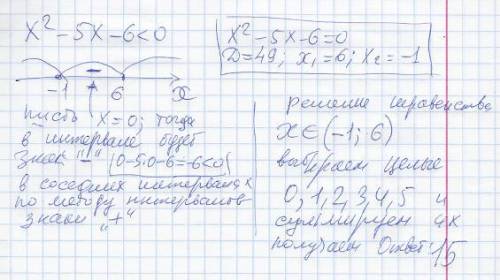 x² - 5x - 6 < 0
-1 - 6 x
пусть x = 0; тогда
в интервале будет
знак "-" |0-5·0-6=-6<0|
в соседних интервалах
по методу интервалов
знаки "+"
x² - 5x - 6 = 0
D = 49; x₁ = 6; x₂ = -1
решение неравенства
x ∈ (-1; 6)
выбираем целые
0, 1, 2, 3, 4, 5 и
суммируем их
получаем Ответ: 15